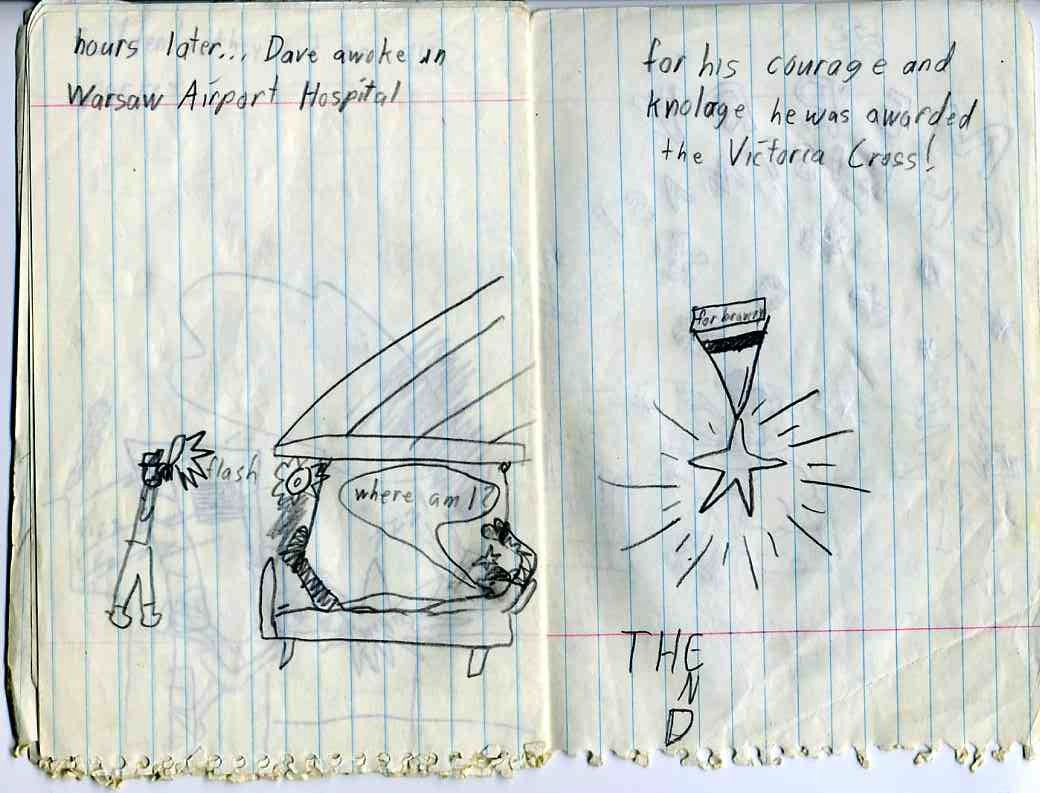 hours later... Dave awoke in
Warsaw Airport Hospital
flash
where am I?
for his courage and
knolage he was awarded
the Victoria Cross!
for bravery
THE
N
D